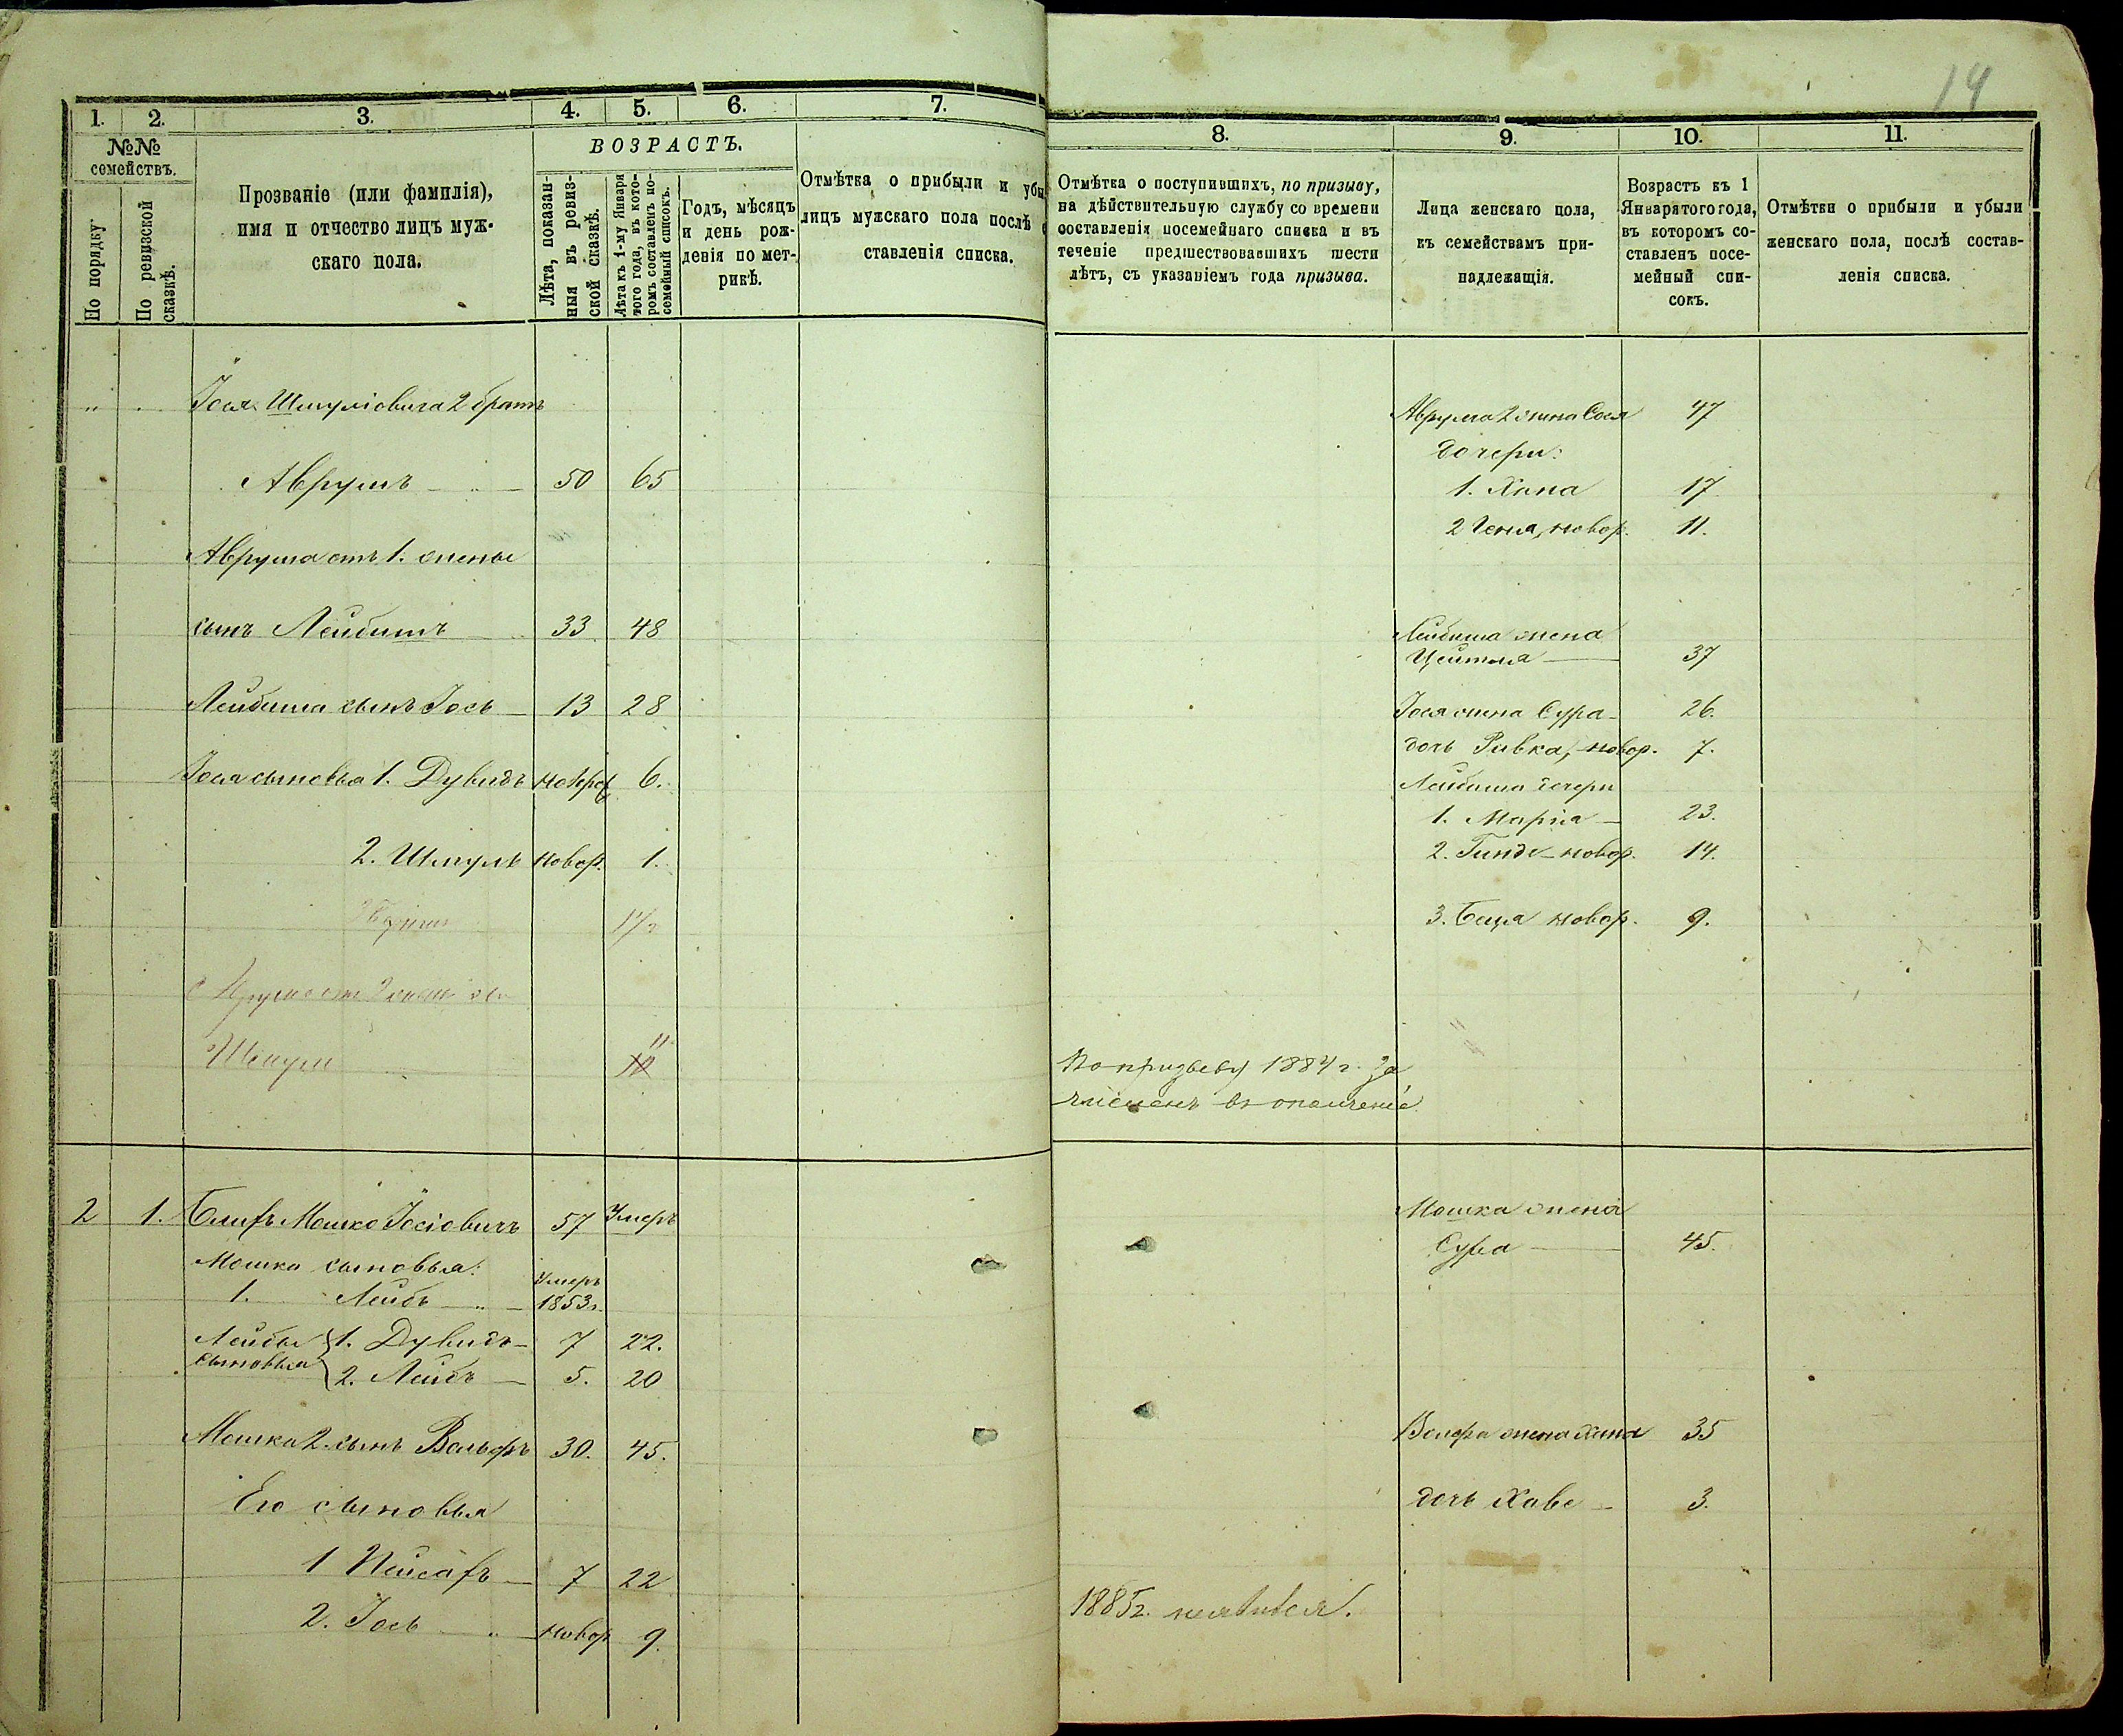 14
1. 2. 3. 4. 5. 6. 7.
№№ семействъ.
По порядку
По ревизской сказкѣ.
Прозваніе (или фамилія),
имя и отчество лицъ муж-
скаго пола.
ВОЗРАСТЪ.
Лѣта, показан-
ныя въ ревиз-
ской сказкѣ.
Лѣта къ 1-му Января
того года, въ кото-
ромъ составленъ по-
семейный списокъ.
Годъ, мѣсяцъ
и день рож-
денія по мет-
рикѣ.
Отмѣтка о прибыли и убы
лицъ мужскаго пола послѣ с
ставленія списка.
Іося Шмуліовича 2 братъ
Аврумъ 50 65
Аврума отъ 1. жены
сынъ Лейбишъ 33 48
Лейбиша сынъ Іось 13 28
Іося сыновья 1. Дувидъ новор 6.
2. Шмуль новор. 1.
1/2
Шмуль 11
10
2 1. Блихъ Мошко Іосіовичъ 57 Умеръ
Мошка сыновья:
1. Лейбъ Умеръ 1853 г.
Лейбы сыновья 1. Дувидъ 7 22.
2. Лейбъ 5. 20
Мошка 2. сынъ Вольфъ 30. 45.
Его сыновья
1 Пейсахъ 7 22
2. Іось новор 9.
8. 9. 10. 11.
Отмѣтка о поступившихъ, по призыву,
на дѣйствительную службу со времени
составленія посемейнаго списка и въ
теченіе предшествовавшихъ шести
лѣтъ, съ указаніемъ года призыва.
Лица женскаго пола,
къ семействамъ при-
надлежащія.
Возрастъ къ 1
Января того года,
въ которомъ со-
ставленъ посе-
мейный спи-
сокъ.
Отмѣтки о прибыли и убыли
женскаго пола, послѣ состав-
ленія списка.
Аврума 2 жена Сося 47
дочери:
1. Хана 17
2 Геня, новор. 11.
Лейбиша жена
Цейтля 37
Іося жена Сура 26.
дочь Ривка, новор. 7.
Лейбиша дочери
1. Марія 23.
2. Гинде новор. 14.
3. Беща новор. 9.
По призыву 1884 г. за
численъ въ ополченіе
Мошка жена
Сура 45.
Вольфа жена Хана 35
дочь Хаве 3.
1885 г. неявился.